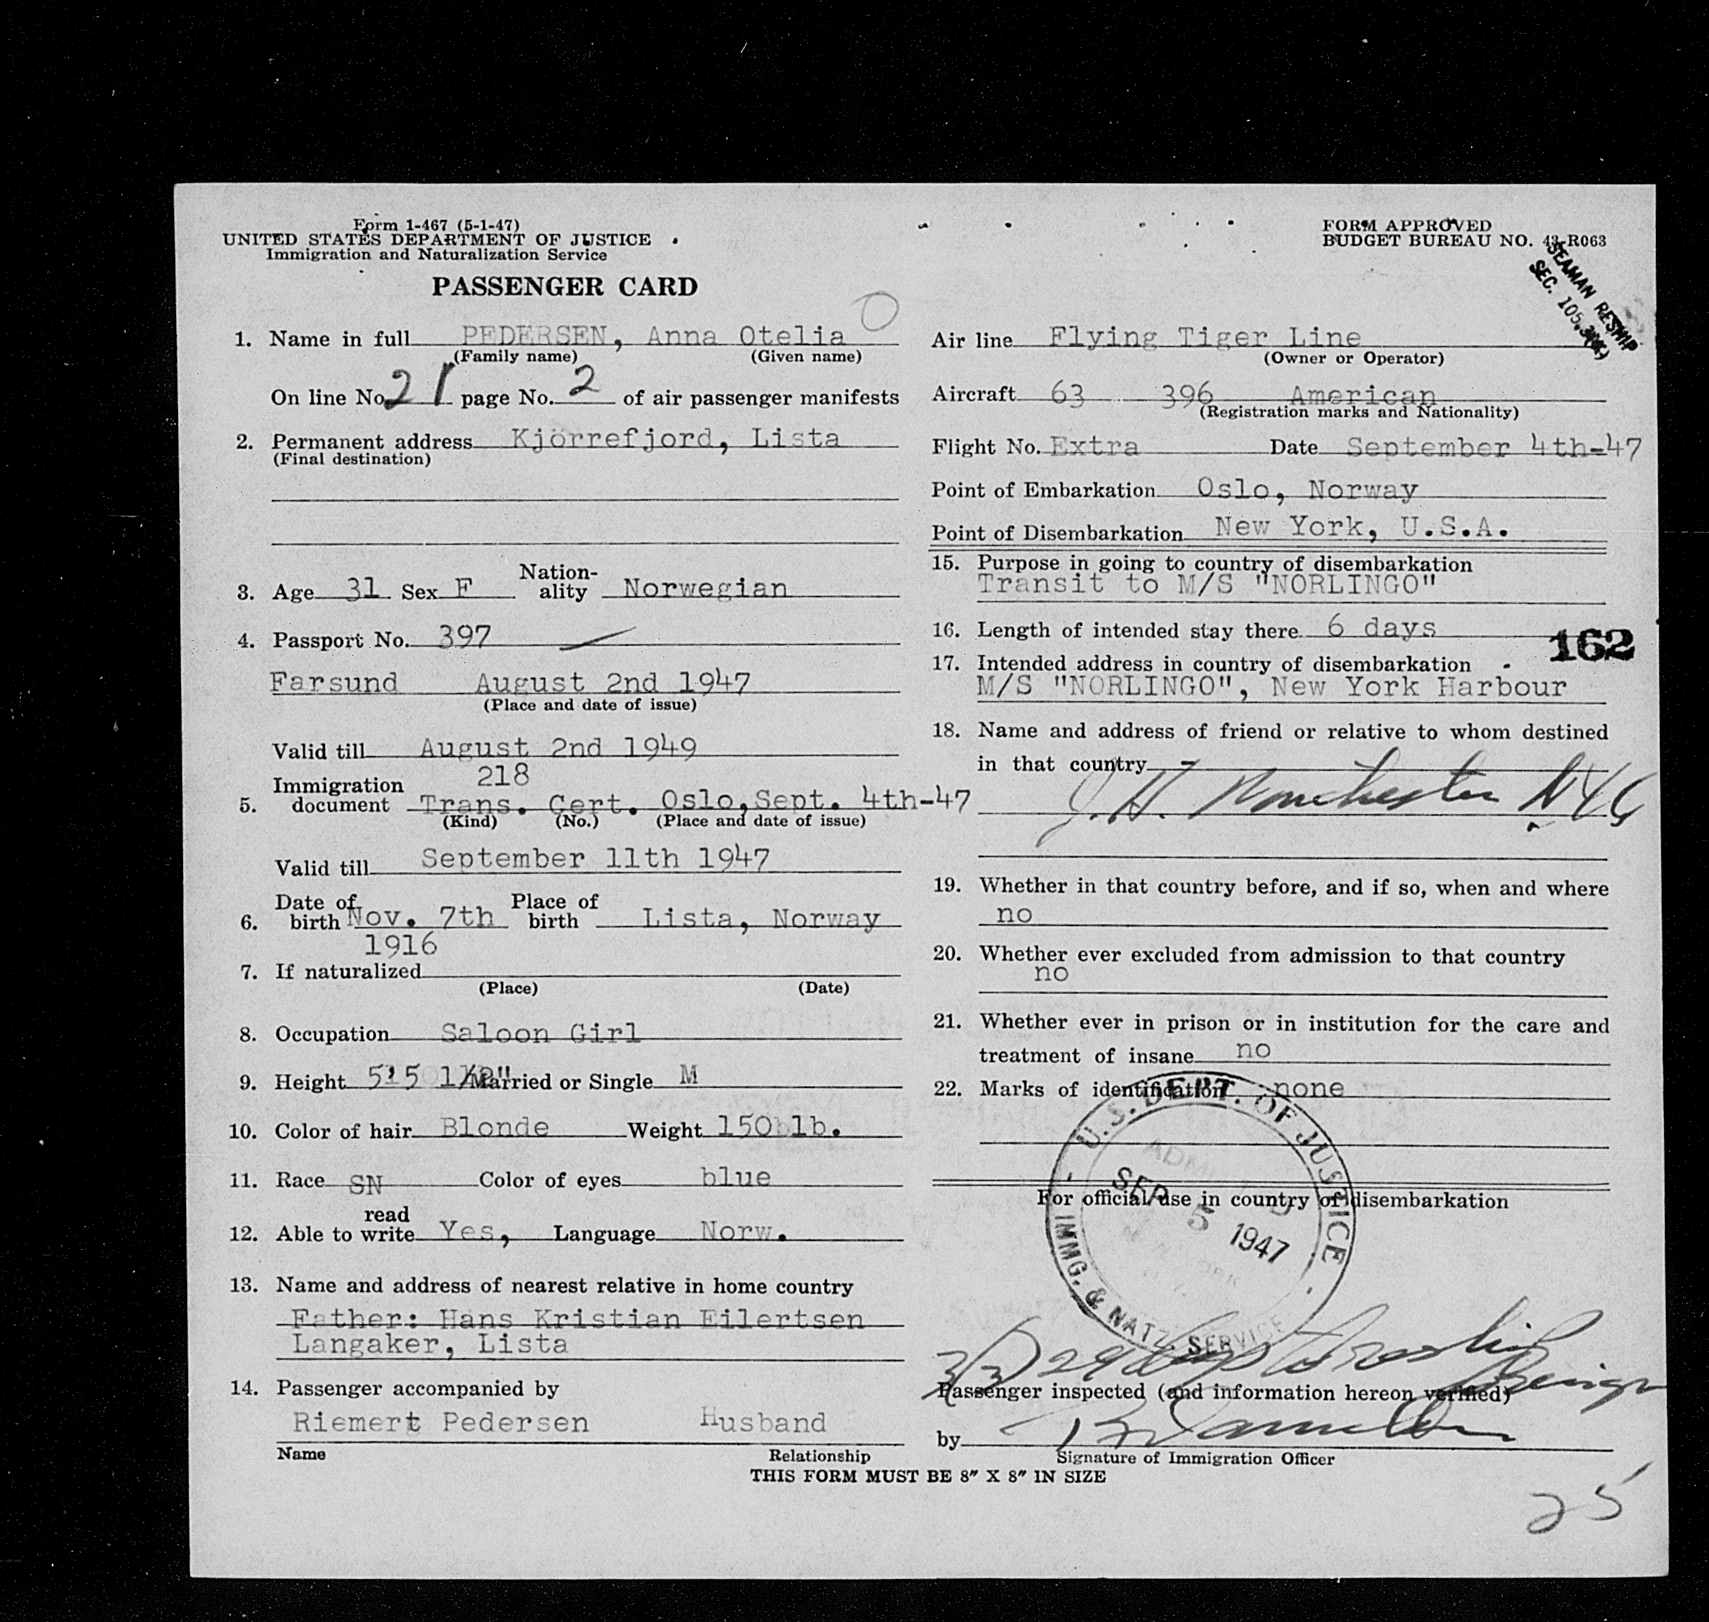 Form 1-467 (5-1-47)
UNITED STATES DEPARTMENT OF JUSTICE
Immigration and Naturalization Service
PASSENGER CARD
1. Name in full PEDERSEN, Anna Otelia
(Family name) (Given name)
On line No. 21 page No. 2 of air passenger manifests
2. Permanent address Kjörrefjord, Lista
(Final destination)
3. Age 31 Sex F Nation-ality Norwegian
4. Passport No. 397
Farsund August 2nd 1947
(Place and date of issue)
Valid till August 2nd 1949
218
5. Immigration document Trans. Cert. Oslo, Sept. 4th-47
(Kind) (No.) (Place and date of issue)
Valid till September 11th 1947
6. Date of birth Nov. 7th Place of birth Lista, Norway
1916
7. If naturalized
(Place) (Date)
8. Occupation Saloon Girl
9. Height 5'5 1/2" Married or Single M
10. Color of hair Blonde Weight 150 lb.
11. Race SN Color of eyes blue
12. Able to read write Yes, Language Norw.
13. Name and address of nearest relative in home country
Father: Hans Kristian Eilertsen
Langaker, Lista
14. Passenger accompanied by
Riemert Pedersen Husband
Name Relationship
FORM APPROVED
BUDGET BUREAU NO. 43-R063
SEAMAN RESHIP
SEC. 105.
Air line Flying Tiger Line
(Owner or Operator)
Aircraft 63 396 American
(Registration marks and Nationality)
Flight No. Extra Date September 4th-47
Point of Embarkation Oslo, Norway
Point of Disembarkation New York, U.S.A.
15. Purpose in going to country of disembarkation
Transit to M/S "NORLINGO"
16. Length of intended stay there 6 days
162
17. Intended address in country of disembarkation
M/S "NORLINGO", New York Harbour
18. Name and address of friend or relative to whom destined
in that country -
J. H. Wonchester N.Y.C
19. Whether in that country before, and if so, when and where
no
20. Whether ever excluded from admission to that country
no
21. Whether ever in prison or in institution for the care and
treatment of insane no
22. Marks of identification none
U.S. DEPT. OF JUSTICE
ADMITTED
SEP 5 1947
NEW YORK
IMMG. & NATZ. SERVICE
For official use in country of disembarkation
3(3) 29 days to reship
foreign
Passenger inspected (and information hereon verified)
by
Signature of Immigration Officer
THIS FORM MUST BE 8" X 8" IN SIZE
25